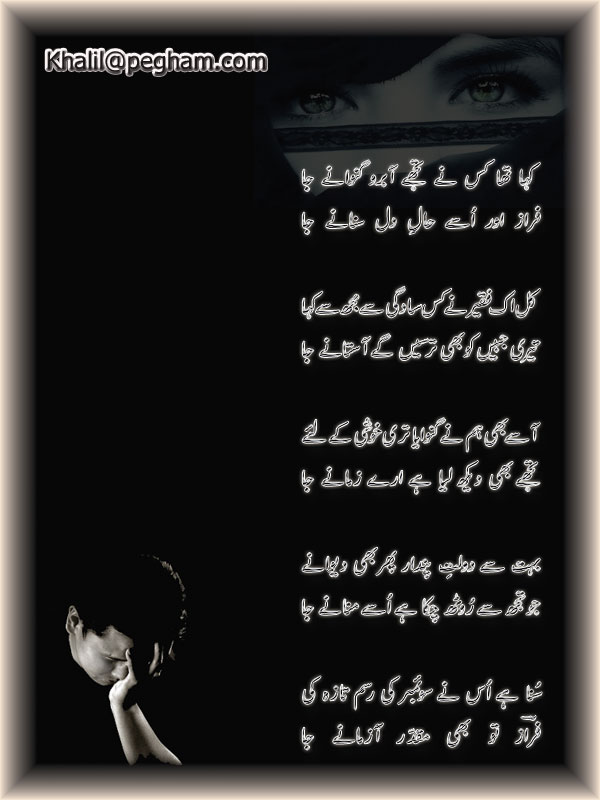 Khalil@pegham.com
کہا تھا کس نے تجھے آبرو گنوانے جا
فراز اور اُسے حالِ دل سنانے جا
کل اک فقیر نے کس سادگی سے مجھ سے کہا
تیری جبیں کو بھی ترسیں گے آستانے جا
اُسے بھی ہم نے گنوایا تری خوشی کے لئے
تجھے بھی دیکھ لیا ہے ارے زمانے جا
بہت ہے دولتِ پندار پھر بھی دیوانے
جو تجھ سے رُوٹھ چکا ہے اُسے منانے جا
سُنا ہے اُس نے سوئمبر کی رسم تازہ کی
فرازؔ تو بھی مقدّر آزمانے جا